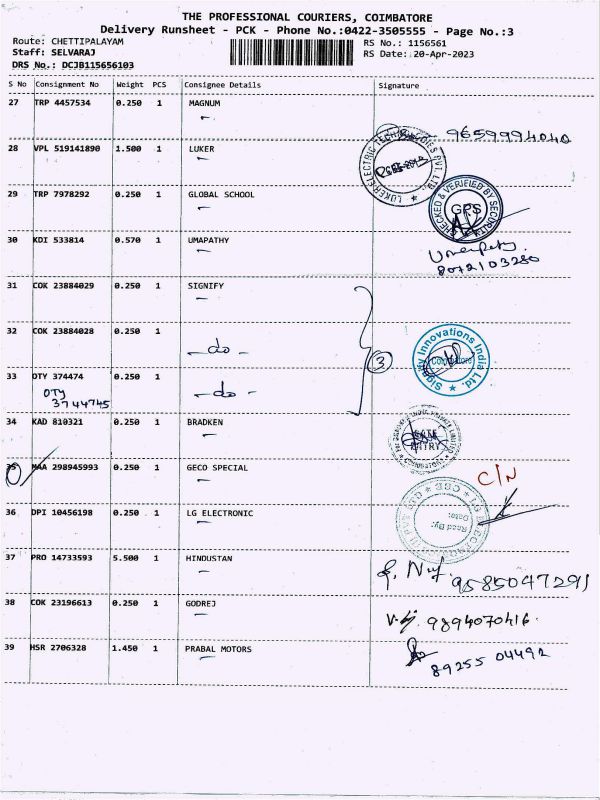 THE PROFESSIONAL COURIERS, COIMBATORE
Delivery Runsheet - PCK - Phone No.:0422-3505555 - Page No.:3
Route: CHETTIPALAYAM
RS No.: 1156561
Staff: SELVARAJ
RS Date: 20-Apr-2023
DRS No.: DCJB115656103
S No Consignment No Weight PCS Consignee Details Signature
27 TRP 4457534 0.250 1 MAGNUM
9659994040
28 VPL 519141890 1.500 1 LUKER
LUKER ELECTRIC TECHNOLOGIES PVT. LTD.
29 TRP 7978292 0.250 1 GLOBAL SCHOOL
CHECKED & VERIFIED BY SECURITY
GPS
30 KDI 533814 0.570 1 UMAPATHY
Umapathy
8072103280
31 COK 23884029 0.250 1 SIGNIFY
32 COK 23884028 0.250 1
-do-
3
Signify Innovations India Ltd.
Coimbatore
33 OTY 374474 0.250 1
-do-
OTY
3744745
34 KAD 810321 0.250 1 BRADKEN
GATE
ENTRY
35 MAA 298945993 0.250 1 GECO SPECIAL
C/N
36 DPI 10456198 0.250 1 LG ELECTRONIC
Date:
37 PRO 14733593 5.500 1 HINDUSTAN
9585047291
38 COK 23196613 0.250 1 GODREJ
9894070416
39 HSR 2706328 1.450 1 PRABAL MOTORS
89255 04492